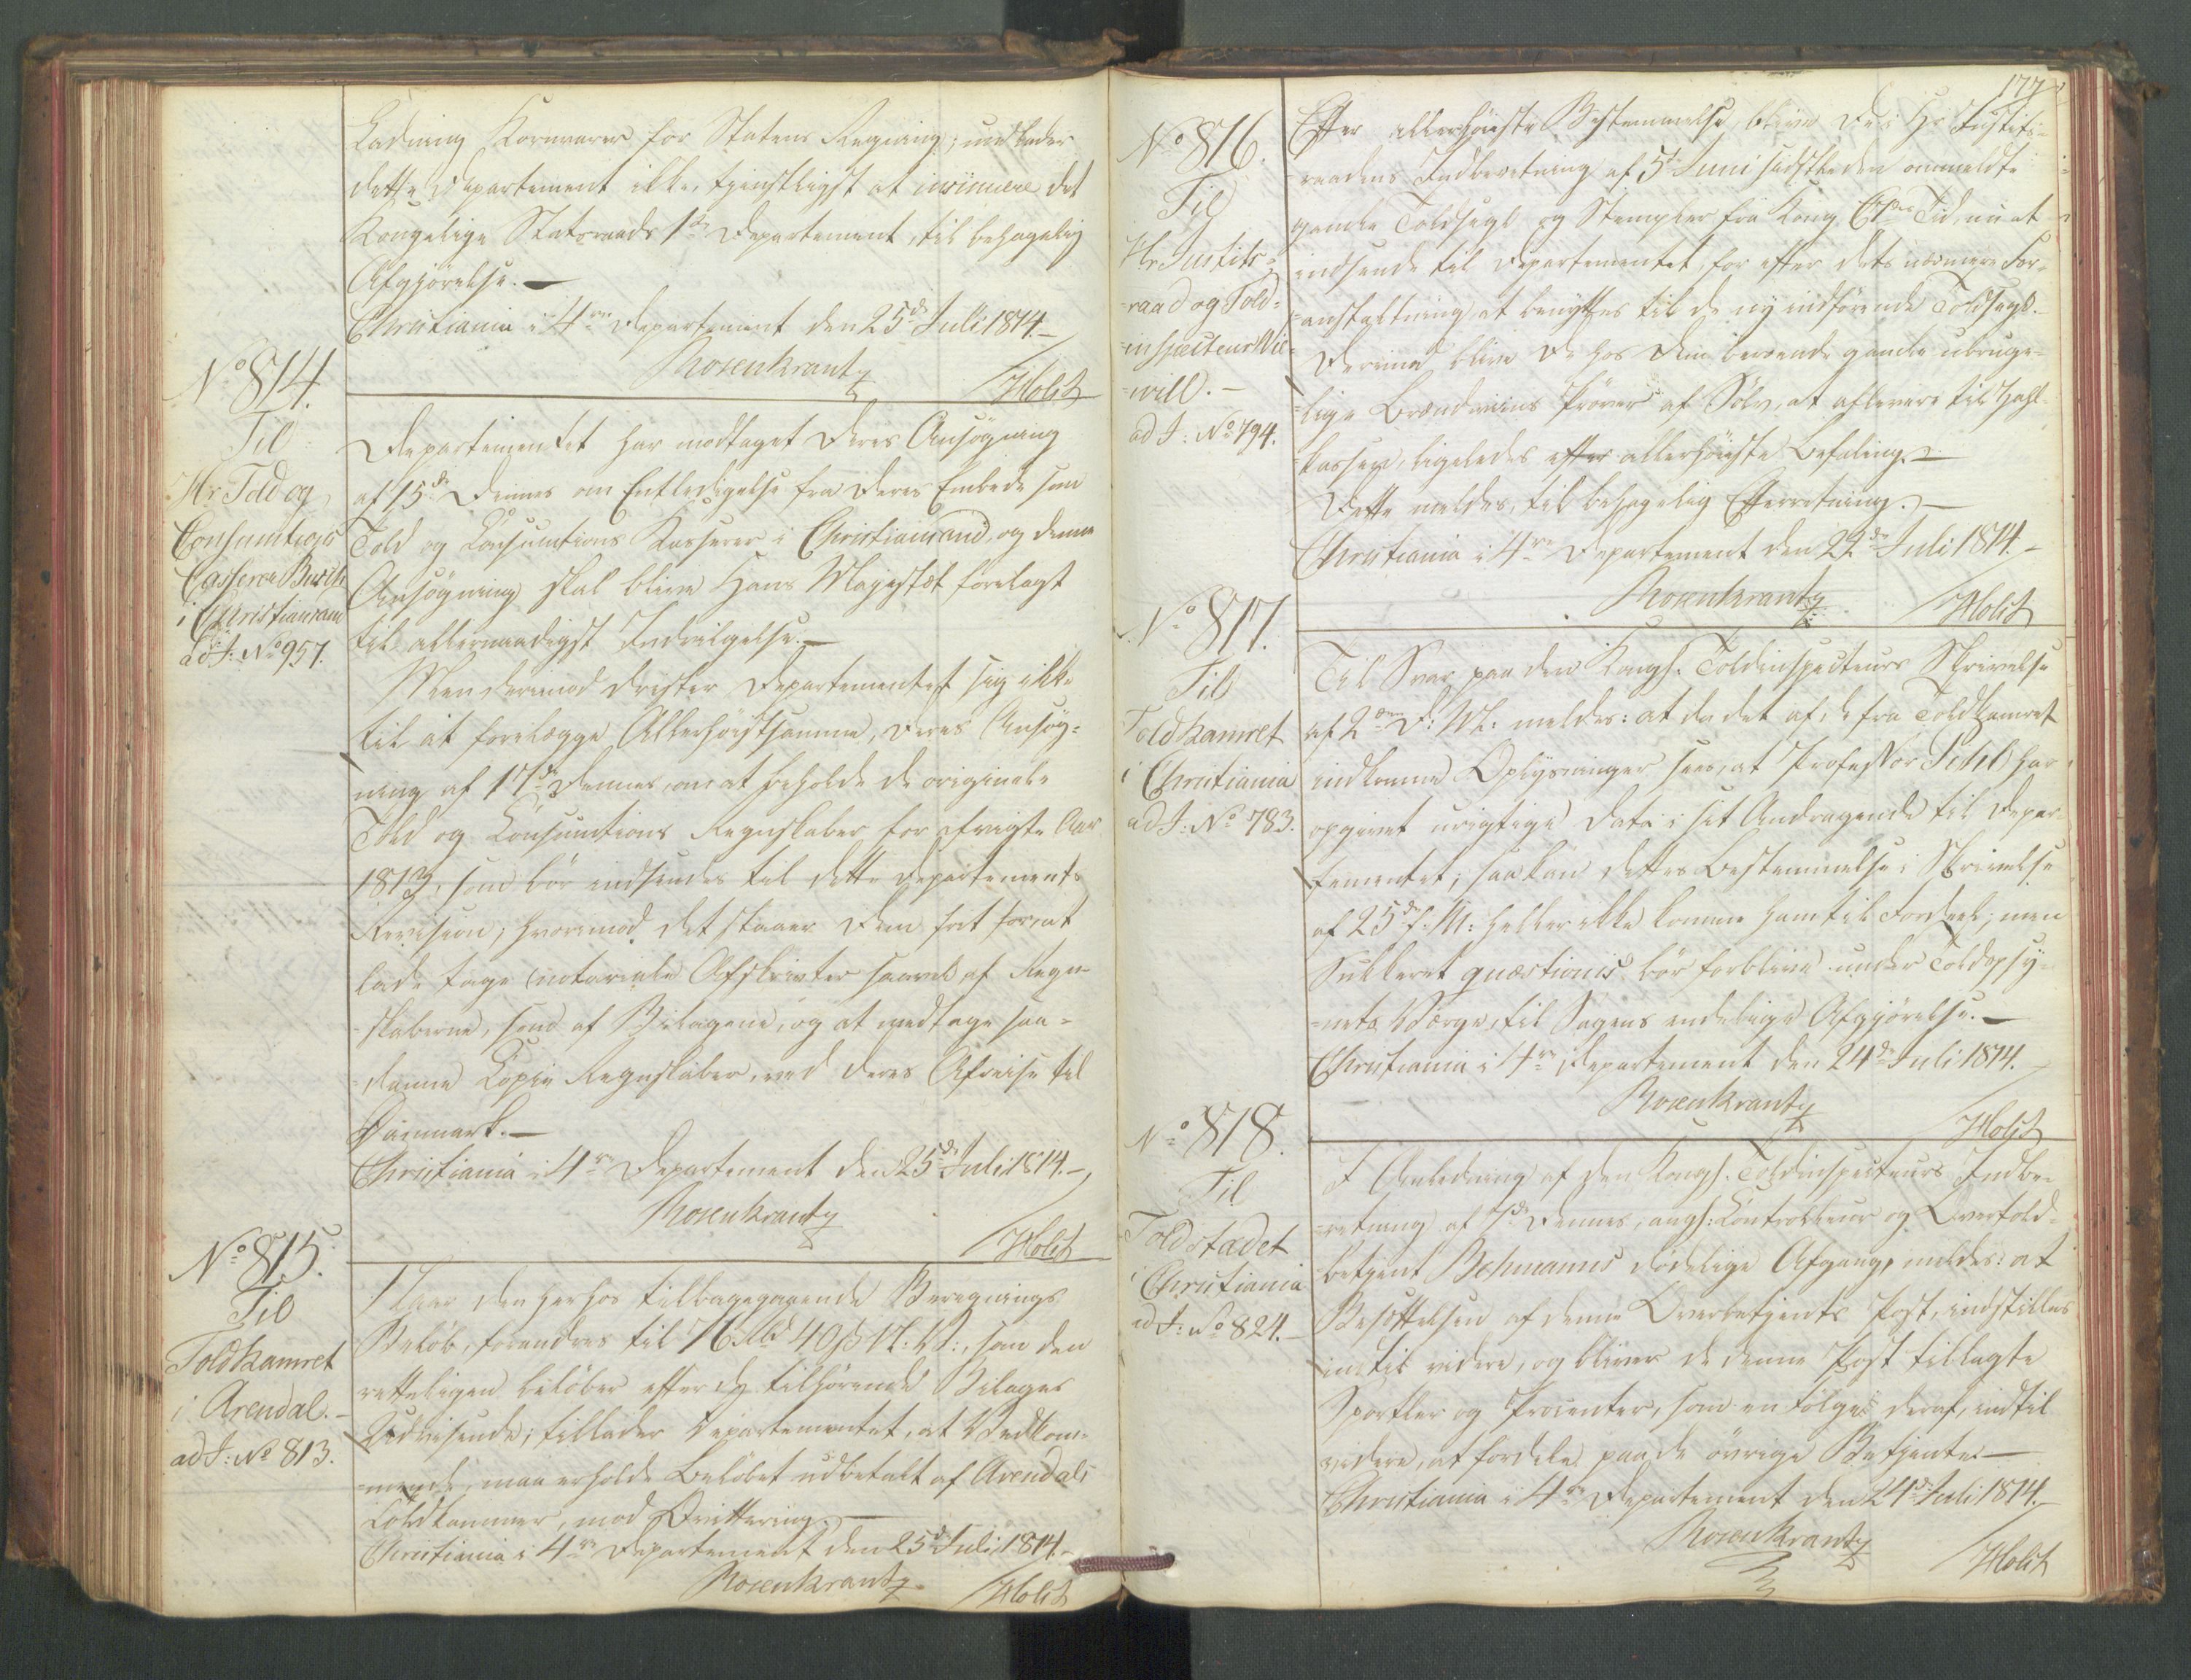 Ladning Kornvarer for Statens Regning; undlader
dette Departement ikke, tjenstligst at insinuere det
Kongelige Statsraads 1ste Departement, til behagelig
Afgjörelse. —
Christiania i 4re Departement den 25de Juli 1814. —
Rosenkrantz
/Holst
No 814.
Til
Hr Told og
Consumtions
Casserer Busch
i Christiansand
ad J: No 957.
Departementet har modtaget Deres Ansögning
af 15de Dennes om Entledigelse fra Deres Embede som
Told og Consumtions Kasserer i Christiansand, og denne
Ansögning skal blive Hans Majestæt forelagt
til allernaadigst Indvilgelse. —
Men derimod drister Departementet sig ikke
til at forelægge Allerhöistsamme, Deres Ansög-
ning af 17de Dennes, om at beholde de originale
Told og Consumtions Regnskaber for afvigte Aar
1813, som bör indsendes til dette Departements
Revision; hvorimod det staaer Dem frit for, at
lade tage notariale Afskrivter saavel af Regn-
skaberne, som af Bilagene, og at medtage saa-
danne Copie Regnskaber, ved Deres Afreise til
Danmark. —
Christiania i 4re Departement den 25de Juli 1814. —
Rosenkrantz
/Holst
No 815.
Til
Toldkamret
i Arendal. —
ad J: No 813.
Naar den herhos tilbagegaaende Beregnings
Belöb, forandres til 76 Rbd 40 ß N: V:, som den
retteligen belöber efter de tilhörende Bilages
Udvisende; tillader Departementet, at Vedkom-
mende, maa erholde Belöbet udbetalt af Arendals
Toldkammer, mod Qvittering. —
Christiania i 4re Departement den 25de Juli 1814. —
Rosenkrantz
/Holst
177
No 816.
Til
Hr Justits-
raad og Told-
inspecteur Wie-
will. —
ad J: No 794.
Efter allerhöieste Bestemmelse, blive de i Hr Justits-
raadens Indberetning af 5te Juni sidstleden ommeldte
gamle Toldsegl og Stempler fra Kong C7des Tid, nu at
indsende til Departementet, for efter dets nærmere For-
anstaltning at benyttes til de ny indförende Toldsegl. —
Derimod blive de hos Dem beroende gamle ubruge-
lige Brændeviins Pröver af Sölv, at aflevere til Zahl-
kassen, ligeledes efter allerhöieste Befaling. —
Dette meldes, til behagelig Efterretning. —
Christiania i 4re Departement den 22de Juli 1814. —
Rosenkrantz
/Holst
No 817.
Til
Toldkamret
i Christiania
ad J: No 783.
Til Svar paa den Kongl. Toldinspecteurs Skrivelse
af 2den d: M: meldes: at da det af de fra Toldkamret
indkomne Oplysninger sees, at Professor Pihl har
opgivet urigtige Data i sit Andragende til Depar-
tementet; saa kan dettes Bestemmelse i Skrivelse
af 25de f: M: heller ikke komme ham til Fordeel; men
Sukkeret quæstionis bör forblive under Toldopsy-
nets Værge, til Sagens endelige Afgjörelse. —
Christiania i 4re Departement den 24de Juli 1814.
Rosenkrantz
/Holst
No 818.
Til
Toldstædet
i Christiania
ad J: No 824. —
I Anledning af den Kongl. Toldinspecteurs Indbe-
retning af 7de Dennes, angl: Controlleur og Overtold-
betjent Bohmanns dödelige Afgang, meldes: at
Besættelsen af denne Overbetjents Post, indstilles
indtil videre, og bliver de denne Post tillagte
Sportler og Procenter, som en Fölge deraf, indtil
videre, at fordele paa de övrige Betjente. —
Christiania i 4re Departement den 24de Juli 1814. —
Rosenkrantz
/Holst